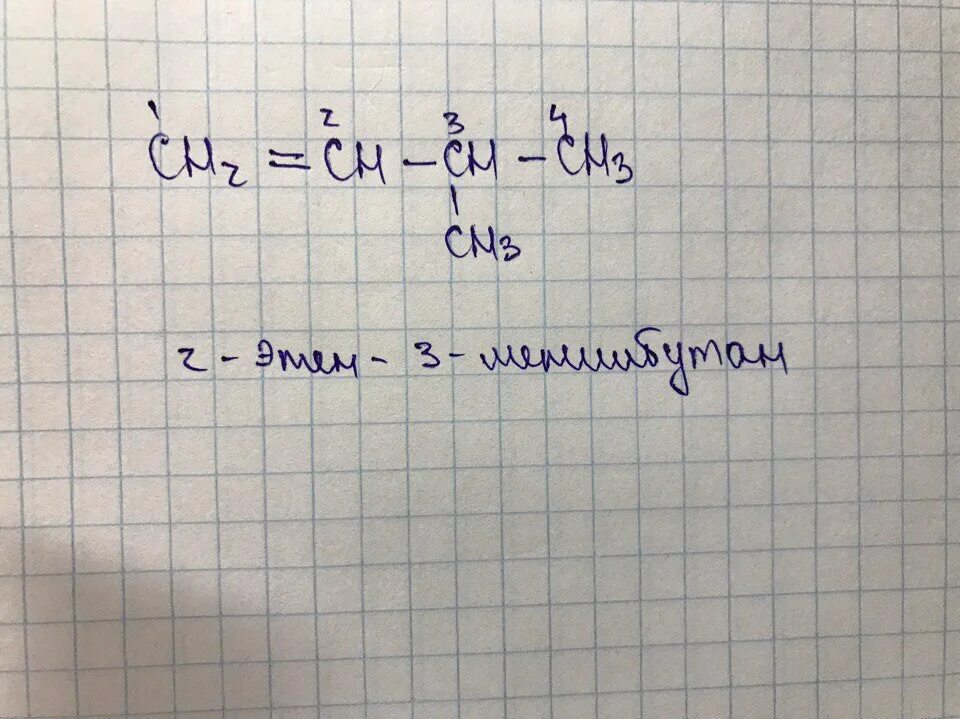 1 2 3 4
CH2 = CH - CH - CH3
CH3
2 - этен - 3 - метилбутан